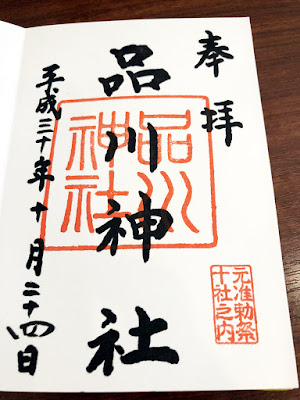 奉拝
品川神社
平成三十年十月二十四日
品川
神社
元准勅祭
十社之内